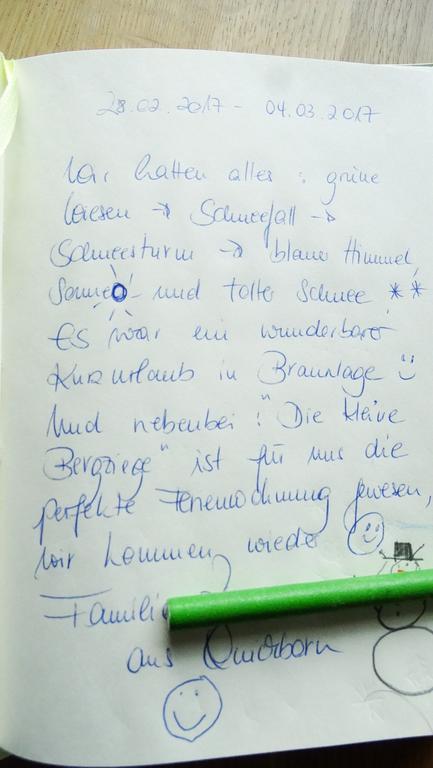 28.02.2017 - 04.03.2017
Wir hatten alles : grüne
Wiesen → Schneefall →
Schneesturm → blauer Himmel,
Sonne und toller Schnee **
Es war ein wunderbarer
Kurzurlaub in Braunlage
Und nebenbei: "Die kleine
Bergziege" ist für uns die
perfekte Ferienwohnung gewesen,
wir kommen wieder
Famili
aus Quickborn